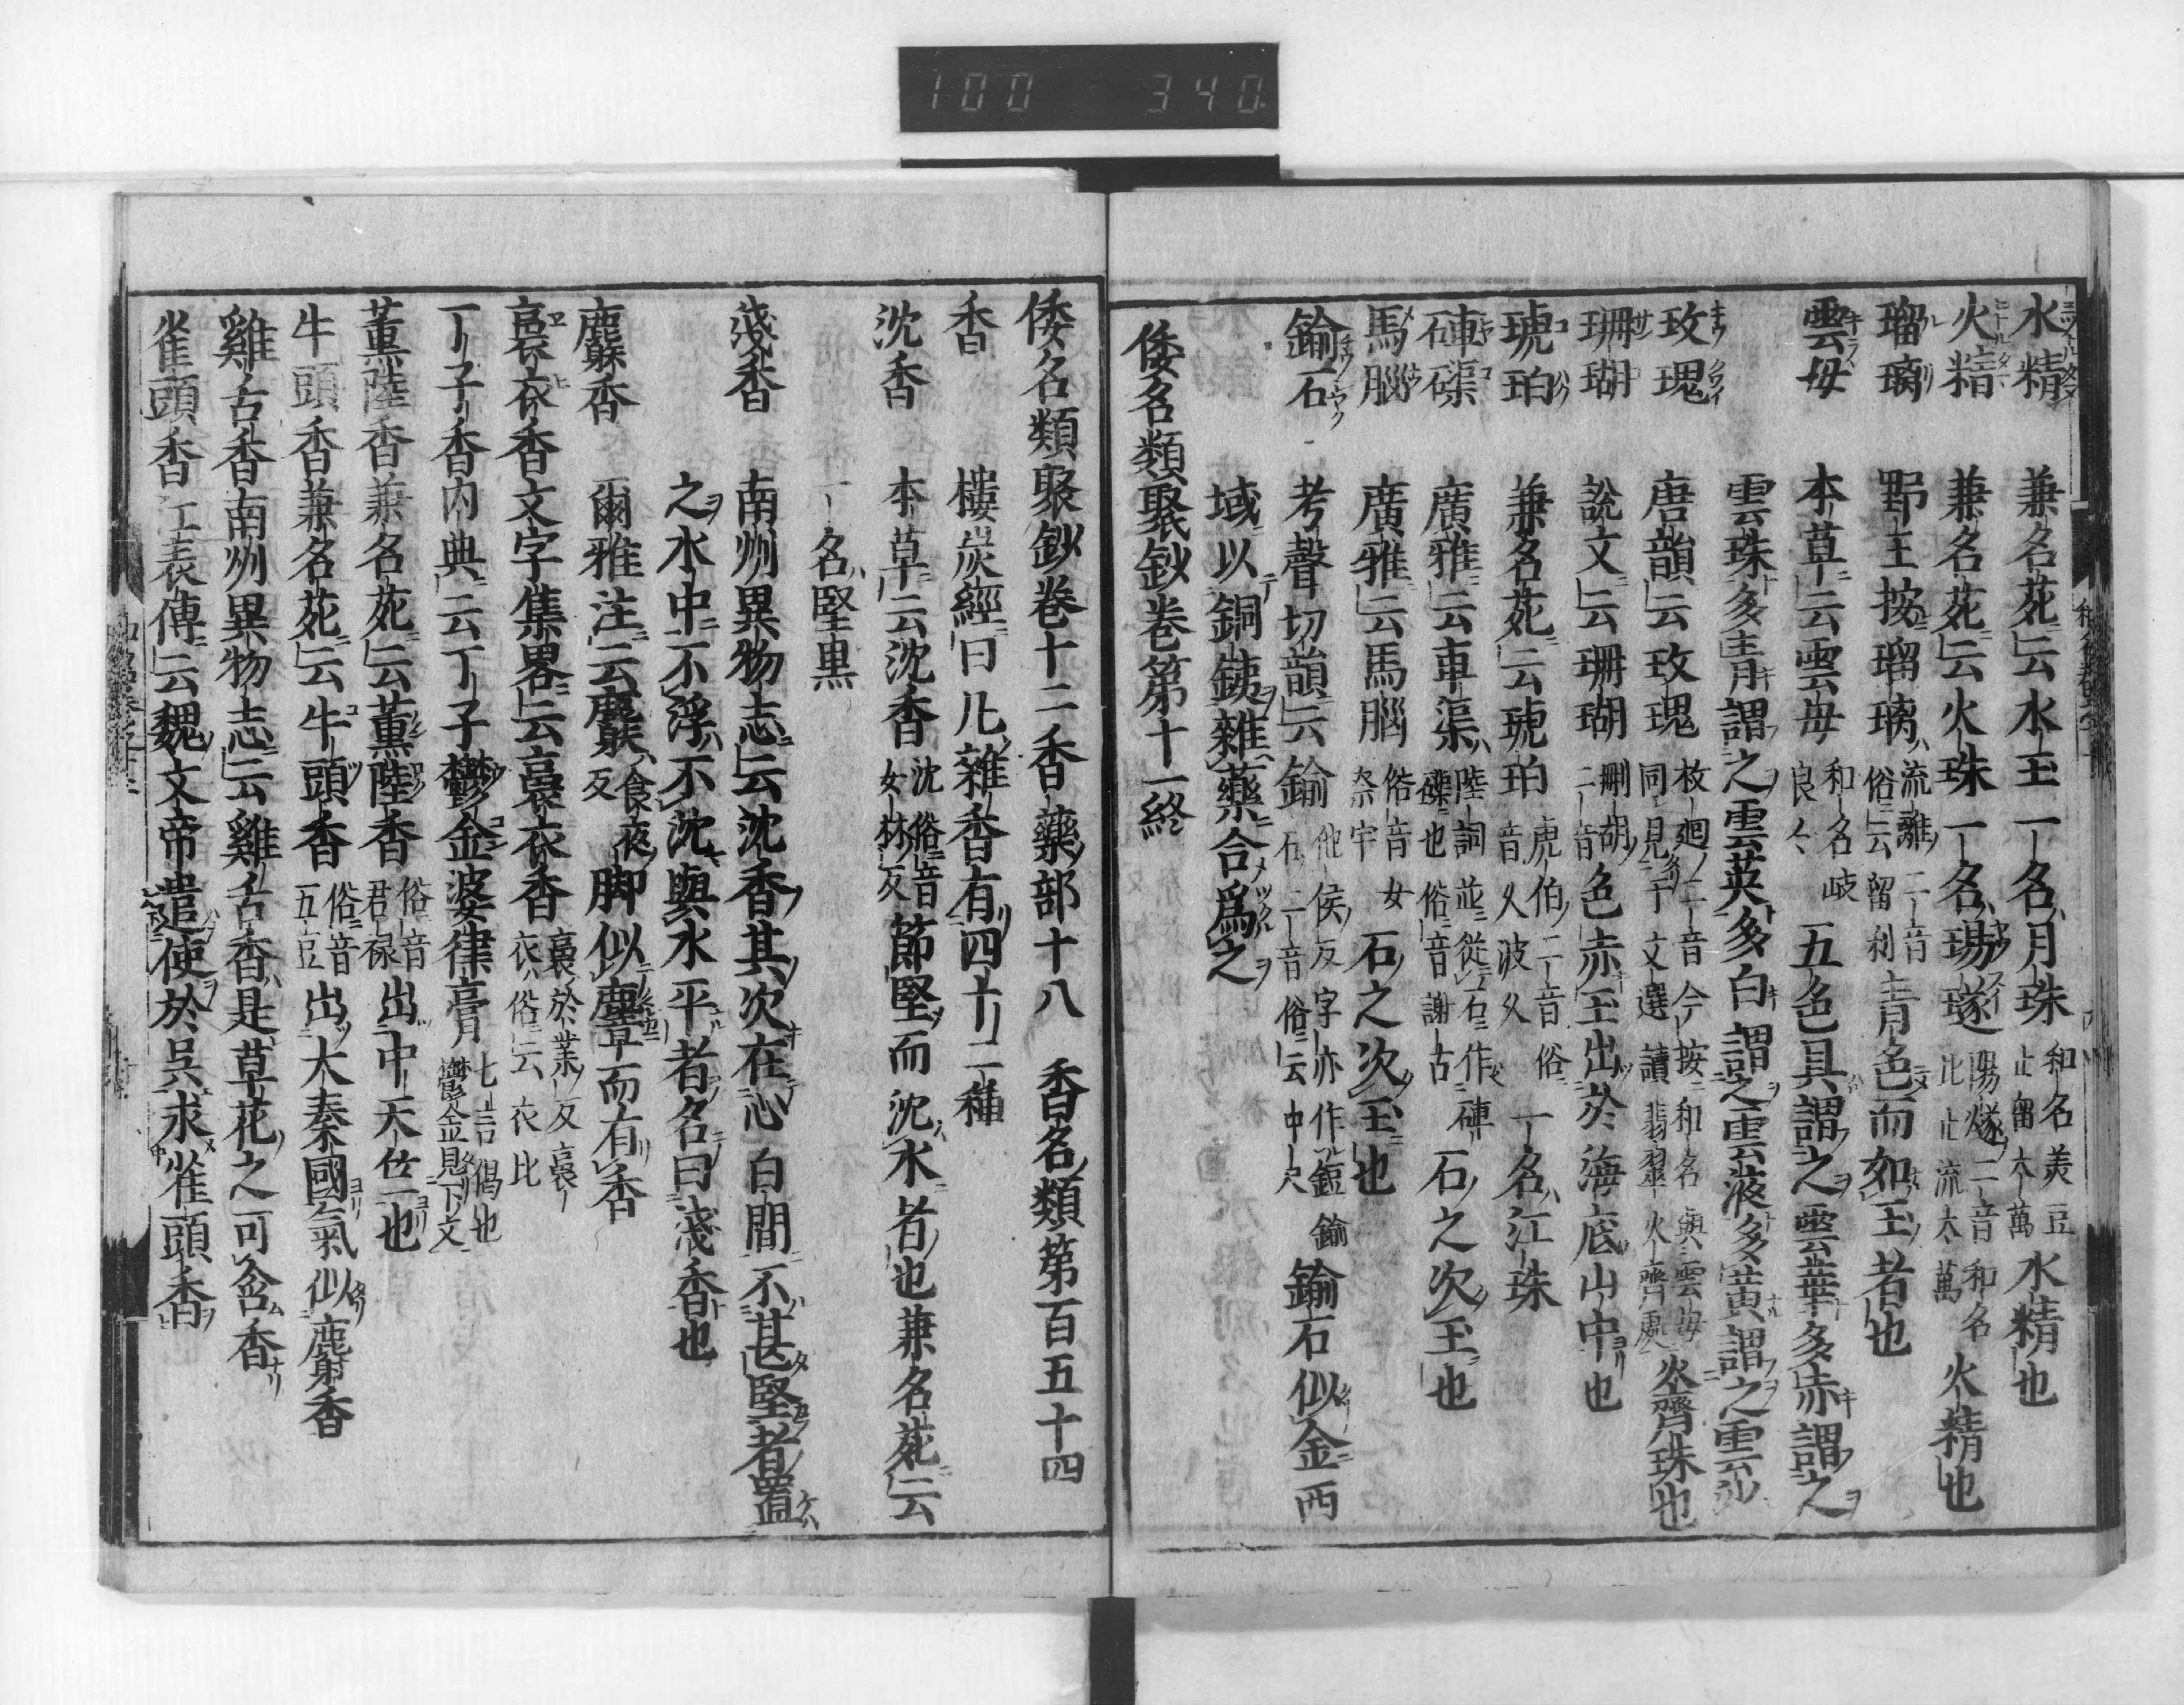 100 340
水精 兼名苑云水玉一名月珠 和名美豆止留太萬 水精也
火精 兼名苑云火珠一名瑒璲 陽燧二音和名比止流太萬 火精也
瑠璃 野王按瑠璃 流離二音俗云留利 青色而如玉者也
雲母 本草云雲母 和名岐良々 五色具謂之雲華多赤謂之
雲珠多青謂之雲英多白謂之雲液多黄謂之雲沙
玫瑰 唐韻云玫瑰 枚廻二音今按和名與雲母同見于文選讀翡翠火齊處 火齊珠也
珊瑚 說文云珊瑚 刪胡二音 色赤玉出於海底山中也
琥珀 兼名苑云琥珀 虎伯二音俗音久波久 一名江珠
硨磲 廣雅云車渠 陸詞並從石作硨磲也俗音謝古 石之次玉也
馬腦 廣雅云馬腦 俗音女奈宇 石之次玉也
鍮石 考聲切韻云鍮 他侯反字亦作鋀鍮石二音俗云中尺 鍮石似金西
域以銅鐵雜藥合爲之
倭名類聚鈔卷第十一終
倭名類聚鈔卷十二香藥部十八 香名類第百五十四
香 樓炭經曰凡雜香有四十二種
沈香 本草云沈香 沈俗音女林反 節堅而沈水者也兼名苑云
一名堅黒
淺香 南州異物志云沈香其次在心白間不甚堅者置
之水中不浮不沈與水平者名曰淺香也
麝香 爾雅注云麝 食夜反 脚似麞而有香
裛衣香 文字集畧云裛衣香 裛於業反裛衣俗云衣比
丁子香 内典云丁子鬱金婆律膏 七言偈也鬱金見下文
薰陸香 兼名苑云薰陸香 俗音君禄 出中天竺也
牛頭香 兼名苑云牛頭香 俗音五豆 出大秦國氣似麝香
雞舌香 南州異物志云雞舌香是草花之可含香
雀頭香 江表傳云魏文帝遣使於呉求雀頭香